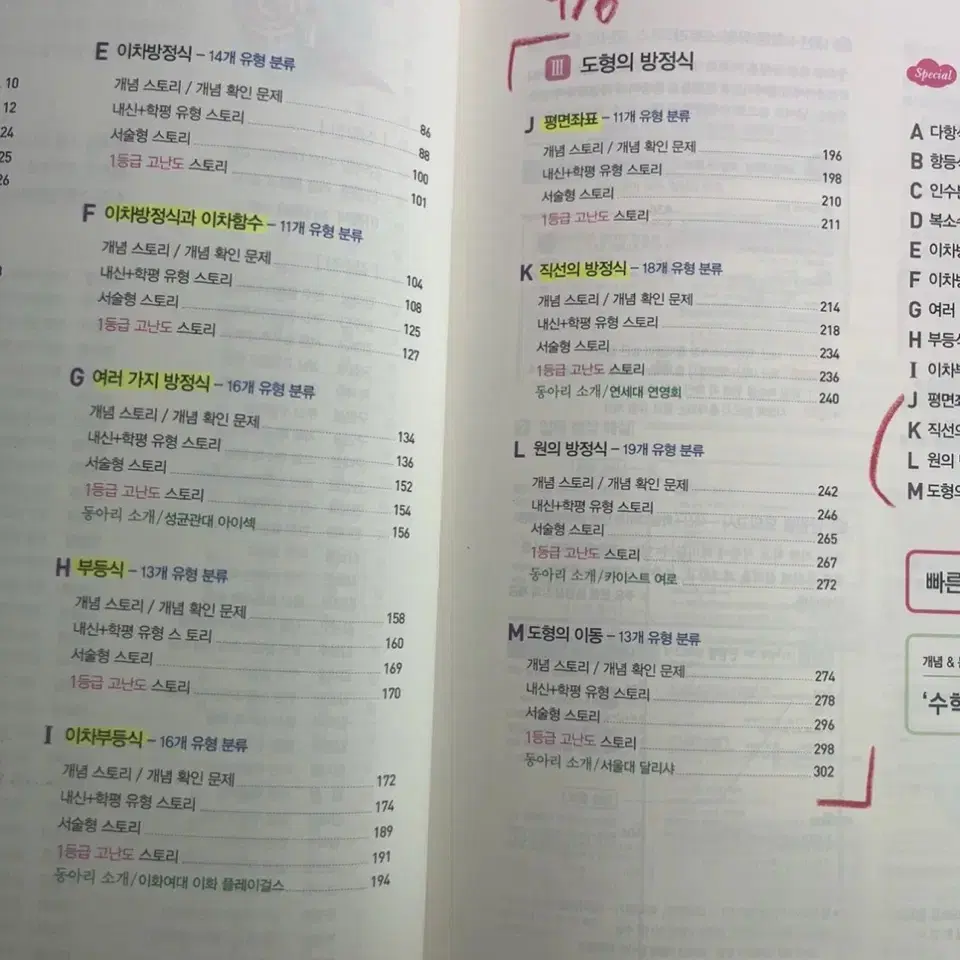 10
12
24
25
26
E 이차방정식 – 14개 유형 분류
개념 스토리 / 개념 확인 문제 86
내신+학평 유형 스토리 88
서술형 스토리 100
1등급 고난도 스토리 101
F 이차방정식과 이차함수 – 11개 유형 분류
개념 스토리 / 개념 확인 문제 104
내신+학평 유형 스토리 108
서술형 스토리 125
1등급 고난도 스토리 127
G 여러 가지 방정식 – 16개 유형 분류
개념 스토리 / 개념 확인 문제 134
내신+학평 유형 스토리 136
서술형 스토리 152
1등급 고난도 스토리 154
동아리 소개/성균관대 아이섹 156
H 부등식 – 13개 유형 분류
개념 스토리 / 개념 확인 문제 158
내신+학평 유형 스 토리 160
서술형 스토리 169
1등급 고난도 스토리 170
I 이차부등식 – 16개 유형 분류
개념 스토리 / 개념 확인 문제 172
내신+학평 유형 스토리 174
서술형 스토리 189
1등급 고난도 스토리 191
동아리 소개/이화여대 이화 플레이걸스 194
III 도형의 방정식
J 평면좌표 – 11개 유형 분류
개념 스토리 / 개념 확인 문제 196
내신+학평 유형 스토리 198
서술형 스토리 210
1등급 고난도 스토리 211
K 직선의 방정식 – 18개 유형 분류
개념 스토리 / 개념 확인 문제 214
내신+학평 유형 스토리 218
서술형 스토리 234
1등급 고난도 스토리 236
동아리 소개/연세대 연영회 240
L 원의 방정식 – 19개 유형 분류
개념 스토리 / 개념 확인 문제 242
내신+학평 유형 스토리 246
서술형 스토리 265
1등급 고난도 스토리 267
동아리 소개/카이스트 여로 272
M 도형의 이동 – 13개 유형 분류
개념 스토리 / 개념 확인 문제 274
내신+학평 유형 스토리 278
서술형 스토리 296
1등급 고난도 스토리 298
동아리 소개/서울대 달리샤 302
Special
A 다항
B 항등
C 인수
D 복소
E 이차
F 이차
G 여러
H 부등
I 이차
J 평면
K 직선의
L 원의
M 도형의
빠른
개념 &
'수학